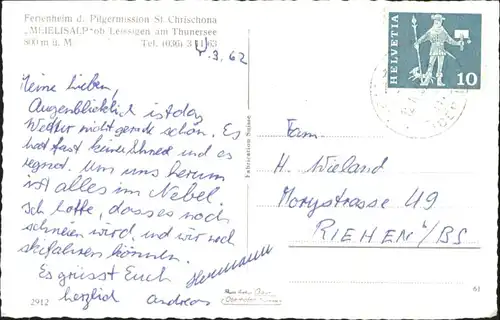 Ferienheim d. Pilgermission St. Chrischona
ob Leissigen am Thunersee
800 m ü. M Tel. (036)
.3.62
Meine Lieben,
Augenblicklich ist das
Wetter nicht gerade schön. Es
hat fast keinen Schnee und es
regnet. Um uns herum
ist alles im Nebel.
Ich hoffe, dass es noch
schneien wird und wir noch
skifahren können.
Es grüsst Euch Hermann
herzlich Andreas
2912
Fabrication Suisse
HELVETIA
10
Fam.
H. Wieland
Morystrasse 49
RIEHEN /BS
61